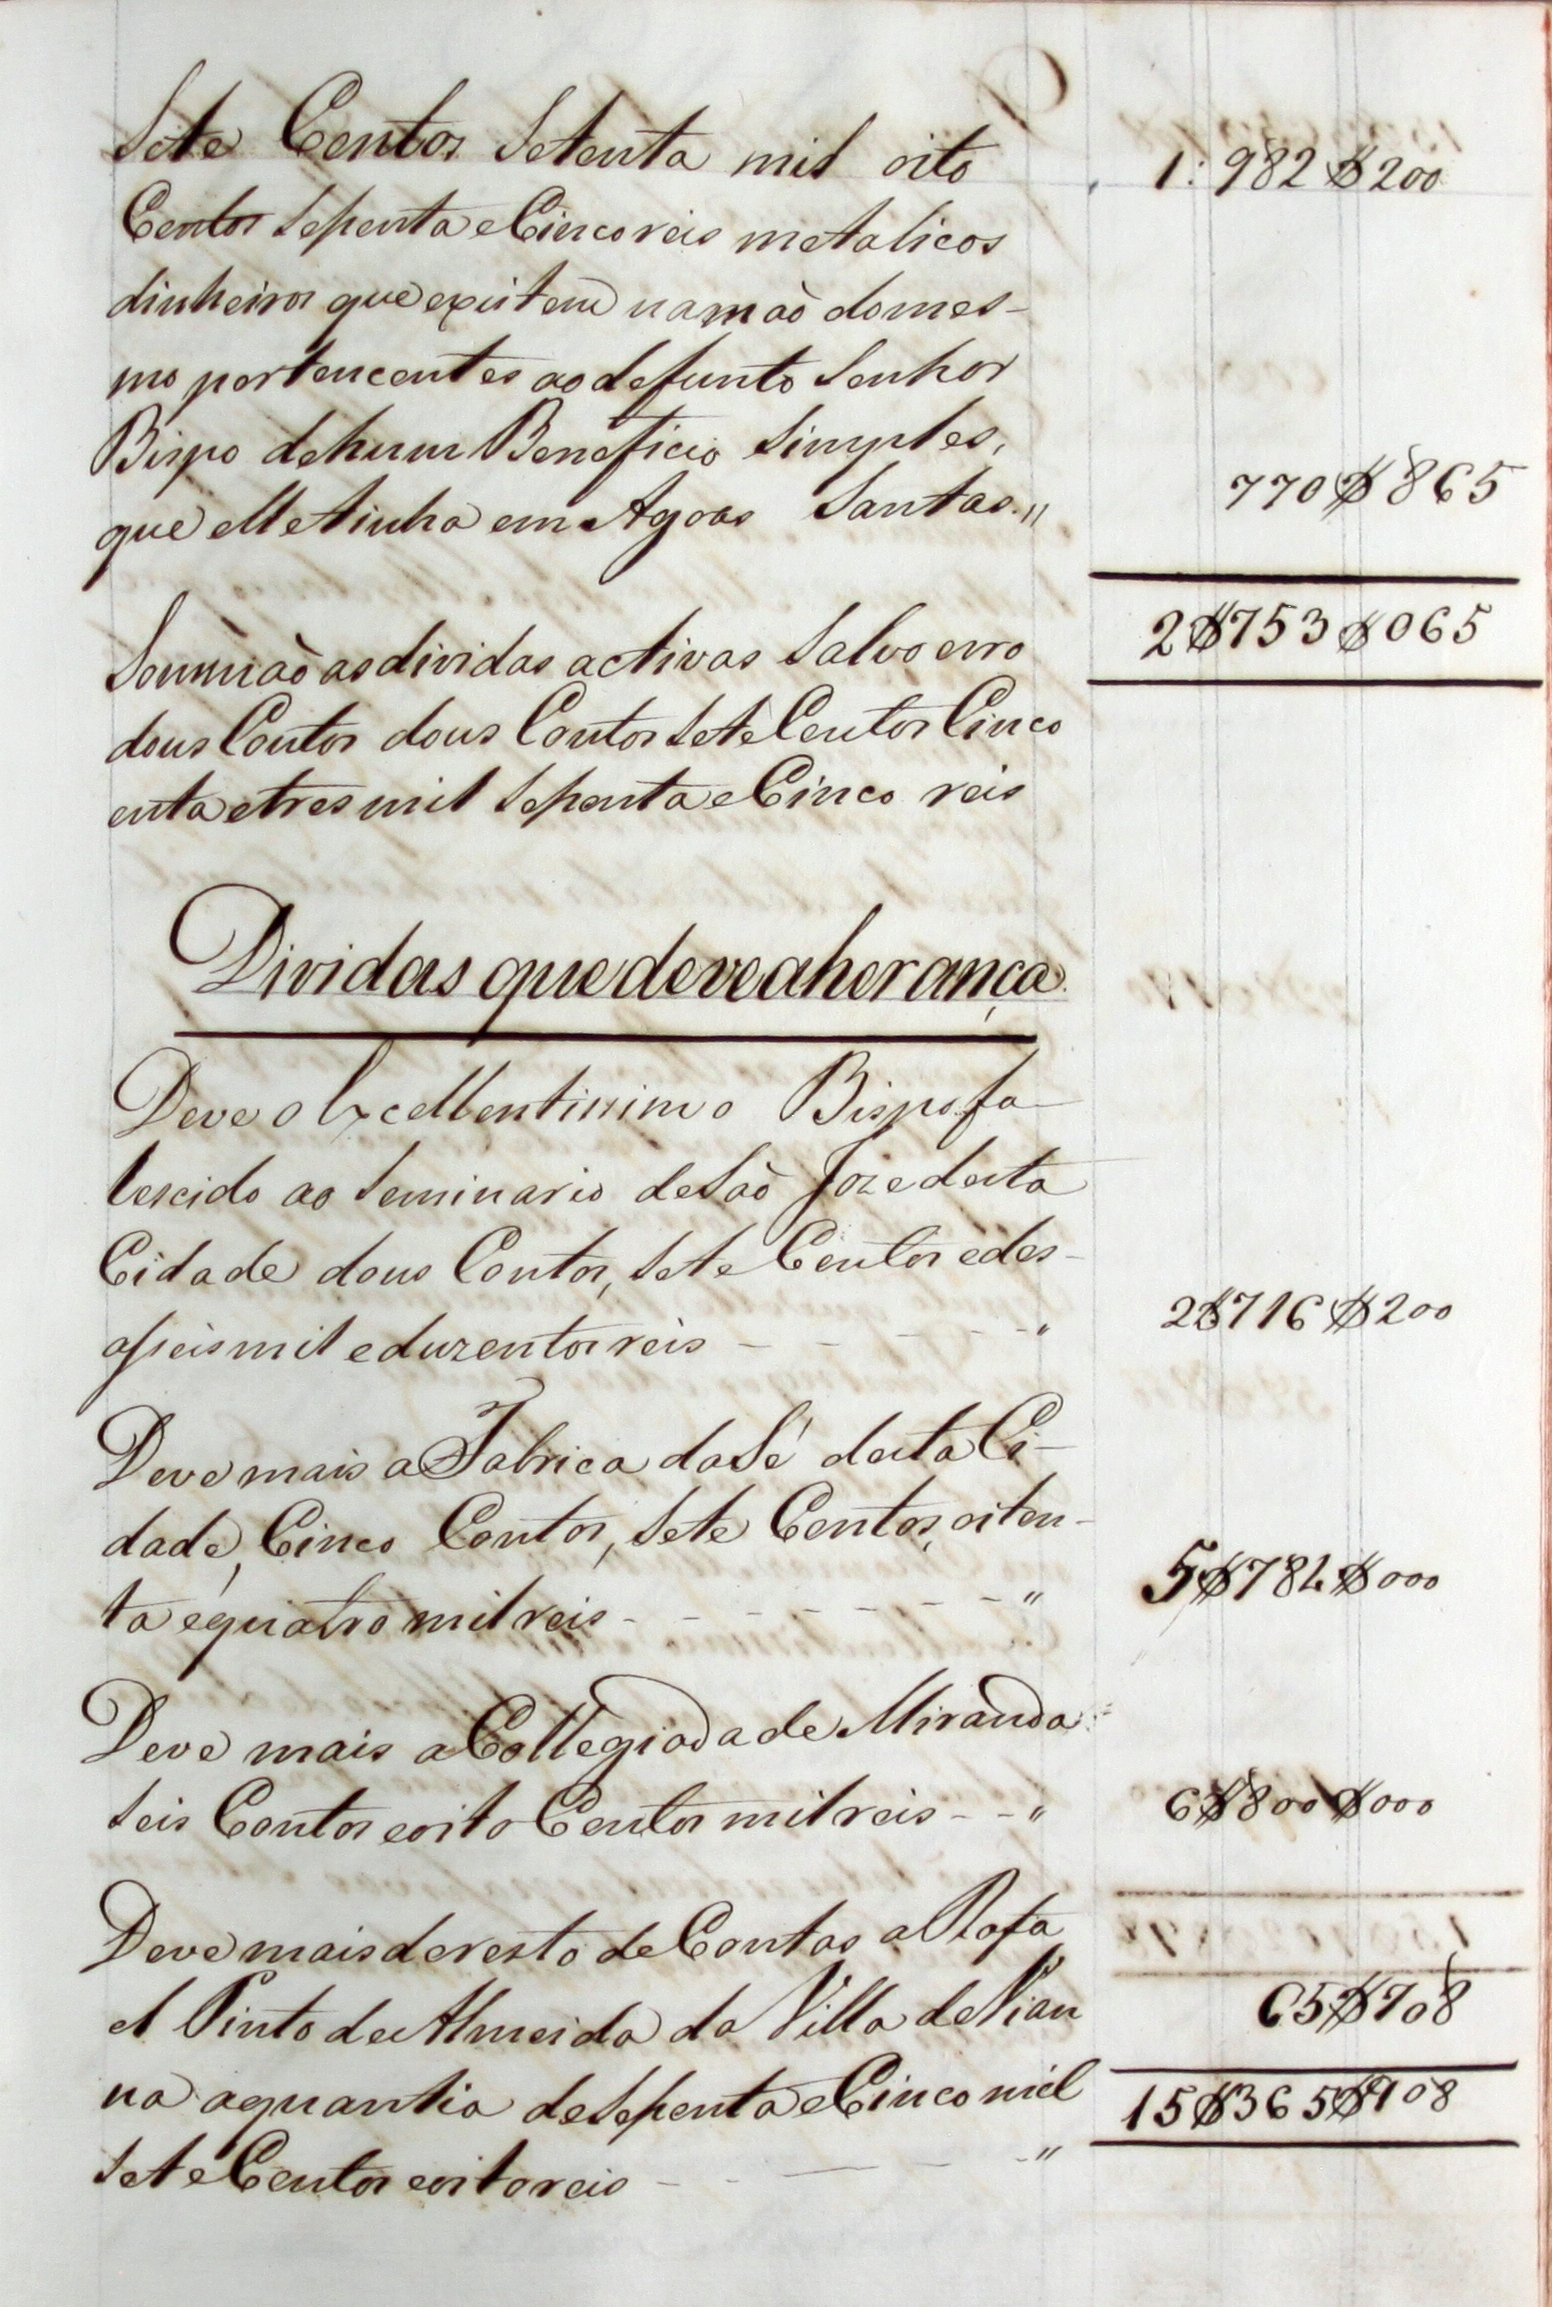 Sete Centos Setenta mil oito
1: 982$200
Centos Sessenta e Cinco reis metalicos
dinheiros que existem na mão do mes-
mo pertencentes ao defunto Senhor
Bispo de hum Beneficio Simples,
que elle tinha em Agoas Santas.,,
770$865
2$753$065
Sommão as dividas activas Salvo erro
dous Contos dous Contos Sete Centos Cinco
enta e tres mil Sessenta e Cinco reis
Dividas que deve a herança.
Deve o Excellentissimo Bispo fa-
lescido ao Seminario de São Joze desta
Cidade dous Contos, Sete Centos e des-
asseis mil e duzentos reis - - - - - "
2$716$200
Deve mais a Fabrica da Sé desta Ci-
dade, Cinco Contos, Sete Centos, oiten-
ta e quatro mil reis - - - - - - - "
5$784$000
Deve mais a Collegiada de Miranda
Seis Contos e oito Centos mil reis - - "
6$800$000
Deve mais de resto de Contas a Rafa
el Pinto de Almeida da Villa de Vian
65$708
na a quantia de Sessenta e Cinco mil
15$365$908
Sete Centos e oito reis - - - - "